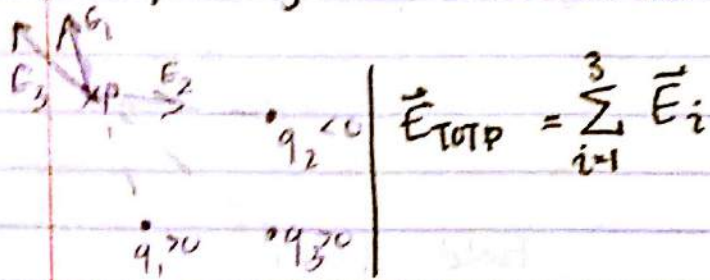 E₁
E₃ P E₂
q₂<0
q₁>0 q₃>0
E⃗_TOTP = ∑_{i=1}^{3} E⃗_i